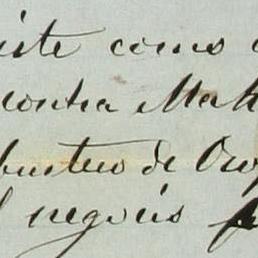 iste como
contra Mat
bustero de Oro
negocis